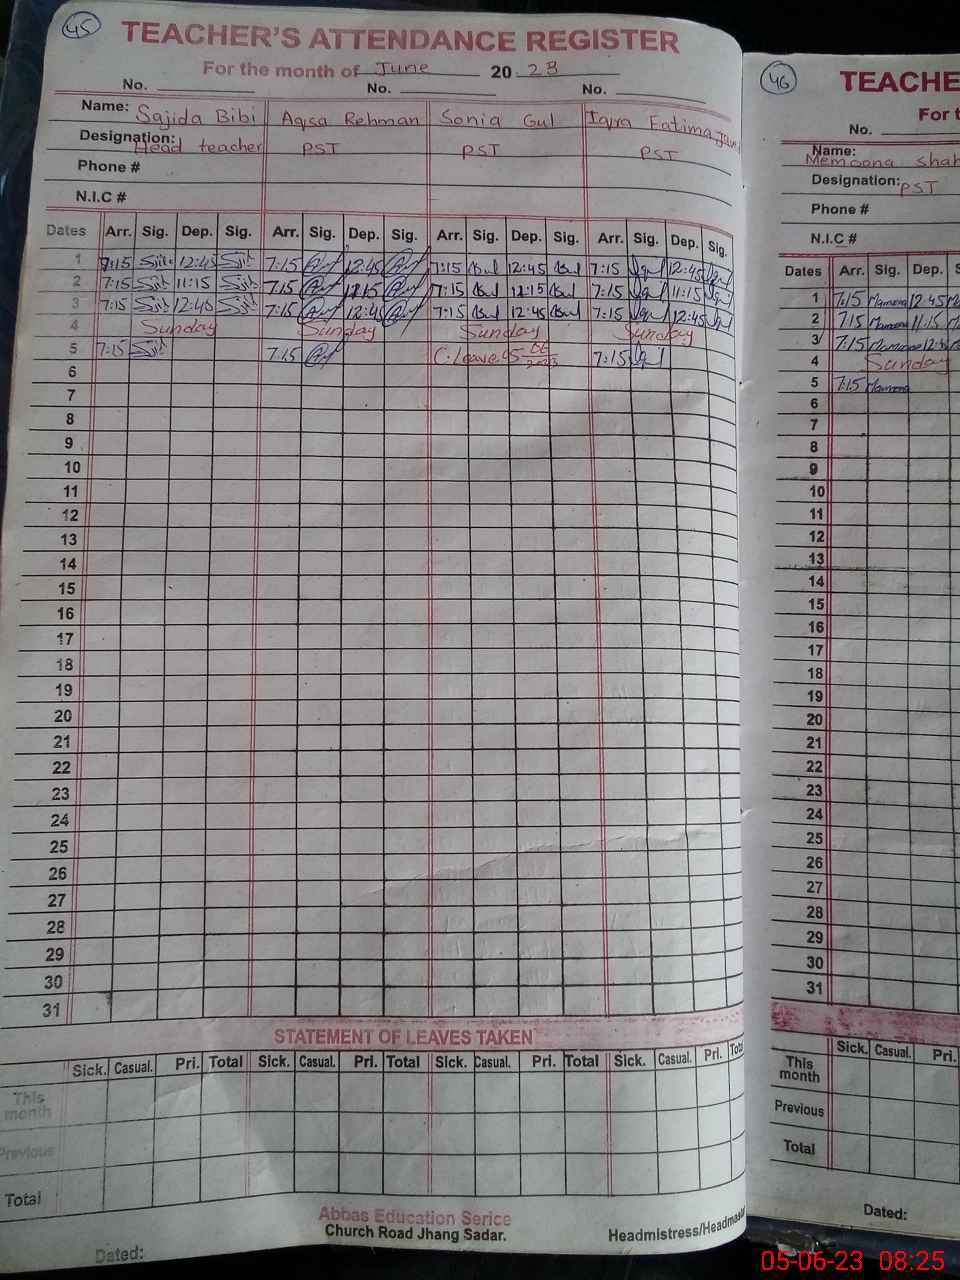 45
TEACHER'S ATTENDANCE REGISTER
For the month of June 20 23
No. No. No.
Name: Sajida Bibi Aqsa Rehman Sonia Gul Iqra Fatima
Designation: Head teacher PST PST PST
Phone #
N.I.C #
Dates Arr. Sig. Dep. Sig. Arr. Sig. Dep. Sig. Arr. Sig. Dep. Sig. Arr. Sig. Dep. Sig.
1 7:15 12:45 7:15 12:45 7:15 12:45 7:15 12:45
2 7:15 11:15 7:15 11:15 7:15 11:15 7:15 11:15
3 7:15 12:45 7:15 12:45 7:15 12:45 7:15 12:45
4 Sunday Sunday Sunday Sunday
5 7:15 7:15 C.Leave 7:15
6
7
8
9
10
11
12
13
14
15
16
17
18
19
20
21
22
23
24
25
26
27
28
29
30
31
STATEMENT OF LEAVES TAKEN
Sick. Casual. Pri. Total Sick. Casual. Pri. Total Sick. Casual. Pri. Total Sick. Casual. Pri. Total
This month
Previous
Total
Abbas Education Serice
Church Road Jhang Sadar.
Headmistress/Headmaster
Dated:
46
TEACHE
For t
No.
Name:
Memoona Shah
Designation: PST
Phone #
N.I.C #
Dates Arr. Sig. Dep. S
1 7:15 Memoona 12:45
2 7:15 Memoona 11:15
3 7:15 Memoona 12:4
4 Sunday
5 7:15 Memoona
6
7
8
9
10
11
12
13
14
15
16
17
18
19
20
21
22
23
24
25
26
27
28
29
30
31
Sick. Casual. Pri.
This month
Previous
Total
Dated:
05-06-23 08:25